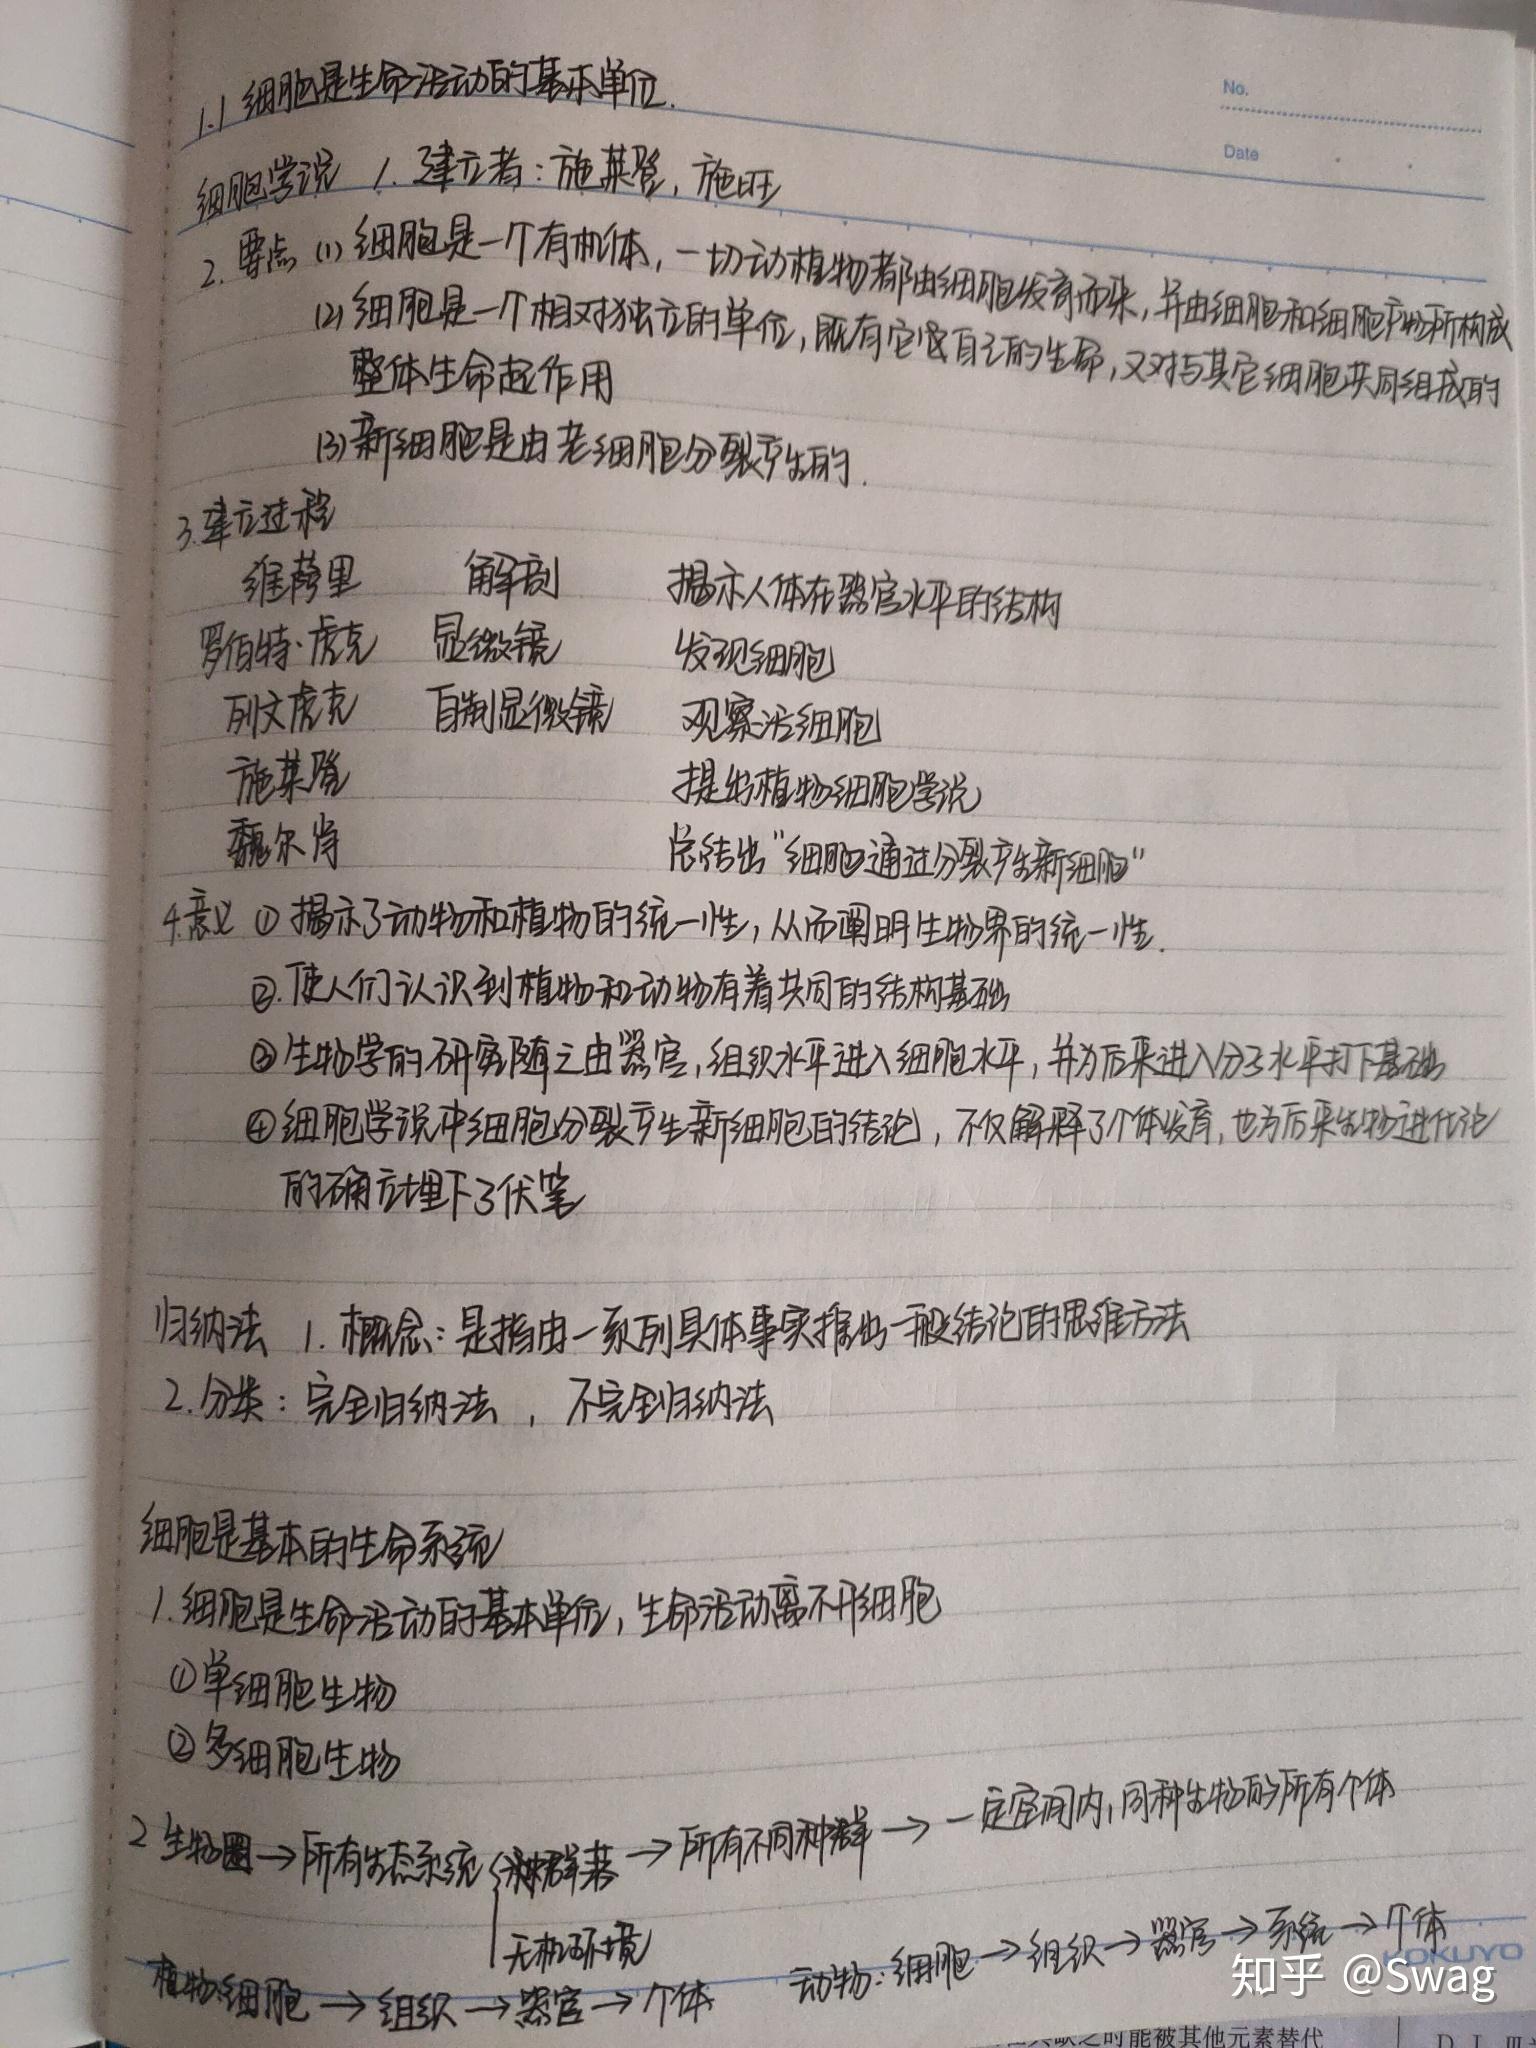 No.
Date
1.1 细胞是生命活动的基本单位.
细胞学说 1. 建立者：施莱登，施旺
2. 要点 (1) 细胞是一个有机体，一切动植物都由细胞发育而来，并由细胞和细胞产物所构成
(2) 细胞是一个相对独立的单位，既有它自己的生命，又对与其它细胞共同组成的
整体生命起作用
(3) 新细胞是由老细胞分裂产生的.
3.建立过程
维萨里 解剖 揭示人体在器官水平的结构
罗伯特·虎克 显微镜 发现细胞
列文虎克 自制显微镜 观察活细胞
施莱登 提出植物细胞学说
魏尔肖 总结出"细胞通过分裂产生新细胞"
4.意义 ① 揭示了动物和植物的统一性，从而阐明生物界的统一性.
②.使人们认识到植物和动物有着共同的结构基础
③生物学的研究随之由器官，组织水平进入细胞水平，并为后来进入分子水平打下基础
④细胞学说中细胞分裂产生新细胞的结论，不仅解释了个体发育，也为后来生物进化论
的确立埋下了伏笔
归纳法 1. 概念：是指由一系列具体事实推出一般结论的思维方法
2.分类：完全归纳法，不完全归纳法
细胞是基本的生命系统
1.细胞是生命活动的基本单位，生命活动离不开细胞
①单细胞生物
②多细胞生物
2 生物圈→所有生态系统 群落→所有不同种群→一定空间内，同种生物的所有个体
无机环境
植物：细胞→组织→器官→个体 动物：细胞→组织→器官→系统→个体
KOKUYO
知乎 @Swag
时能被其他元素替代